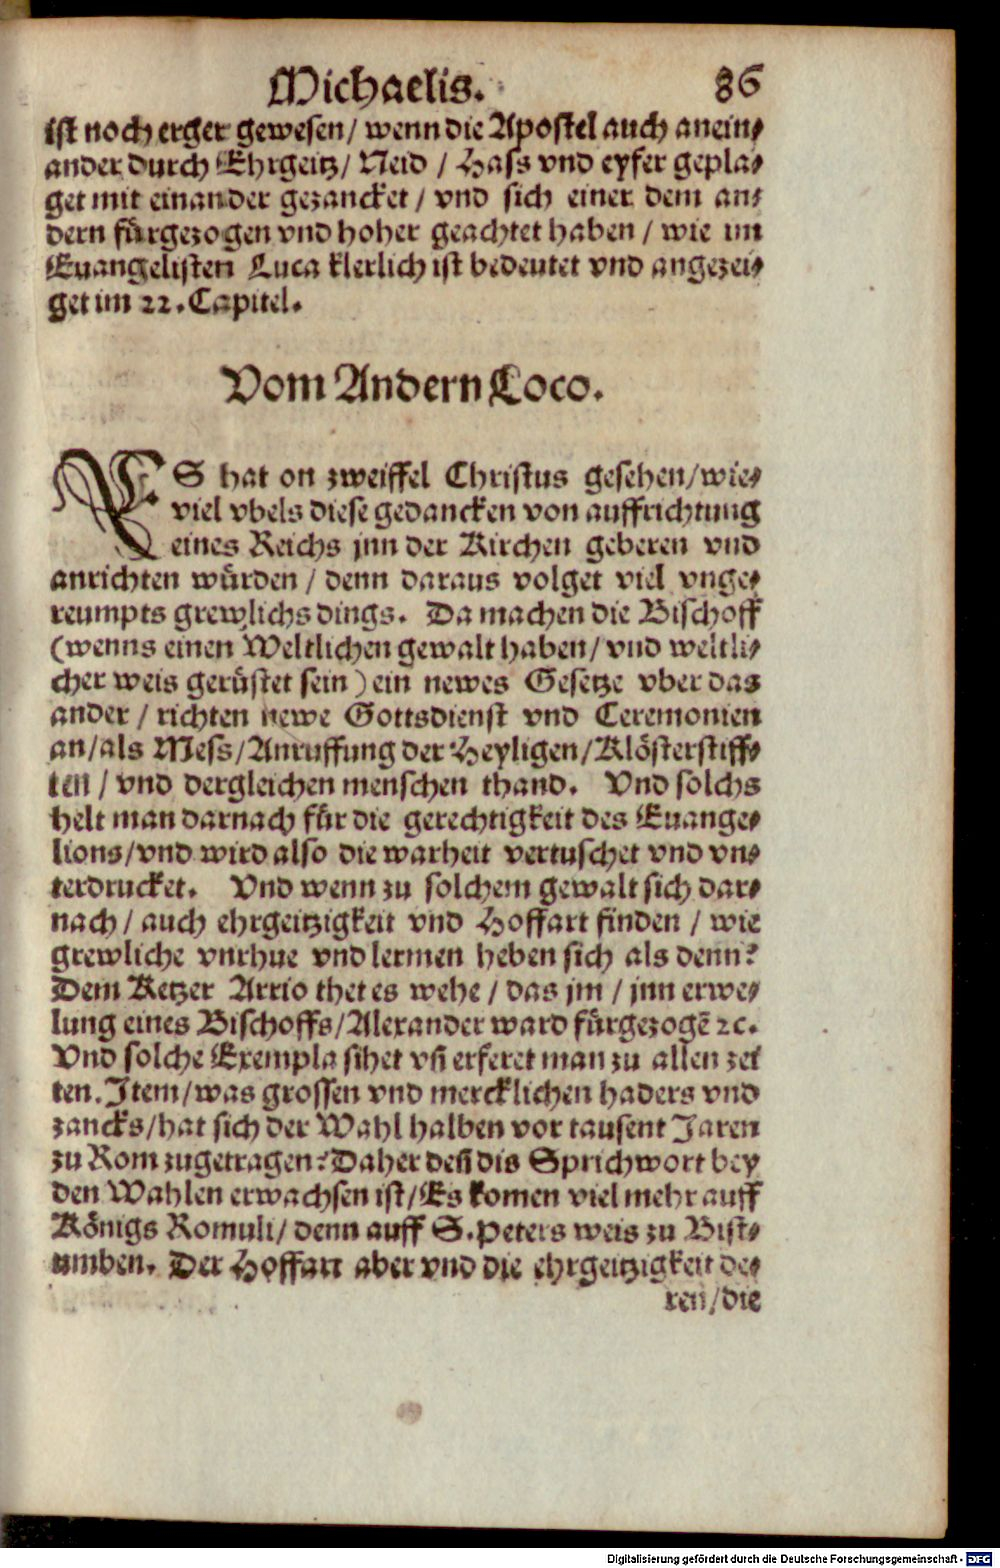 Michaelis. 86
ist noch erger gewesen / wenn die Apostel auch anein⸗
ander durch Ehrgeitz / Neid / Hass vnd eyfer gepla⸗
get mit einander gezancket / vnd sich einer dem an⸗
dern fürgezogen vnd hoher geachtet haben / wie im
Euangelisten Luca klerlich ist bedeutet vnd angezei⸗
get im 22. Capitel.
Vom Andern Loco.
ES hat on zweiffel Christus gesehen / wie⸗
viel vbels diese gedancken von auffrichtung
eines Reichs jnn der Kirchen geberen vnd
anrichten würden / denn daraus volget viel vnge⸗
reumpts grewlichs dings. Da machen die Bischoff
(wenns einen Weltlichen gewalt haben / vnd weltli⸗
cher weis gerüstet sein) ein newes Gesetze vber das
ander / richten newe Gottsdienst vnd Ceremonien
an / als Mess / Anruffung der Heyligen / Klösterstiff⸗
ten / vnd dergleichen menschen thand. Vnd solchs
helt man darnach für die gerechtigkeit des Euange⸗
lions / vnd wird also die warheit vertuschet vnd vn⸗
terdrucket. Vnd wenn zu solchem gewalt sich dar⸗
nach / auch ehrgeitzigkeit vnd Hoffart finden / wie
grewliche vnrhue vnd lermen heben sich als denn?
Dem Ketzer Arrio thet es wehe / das jm / jnn erwe⸗
lung eines Bischoffs / Alexander ward fürgezogē ꝛc.
Vnd solche Exempla sihet vn̄ erferet man zu allen zei
ten. Item / was grossen vnd mercklichen haders vnd
zancks / hat sich der Wahl halben vor tausent Jaren
zu Rom zugetragen? Daher den̄ dis Sprichwort bey
den Wahlen erwachsen ist / Es komen viel mehr auff
Königs Romuli / denn auff S. Peters weis zu Bist⸗
umben. Der Hoffart aber vnd die ehrgeitzigkeit de⸗
ren / die
Digitalisierung gefördert durch die Deutsche Forschungsgemeinschaft - DFG